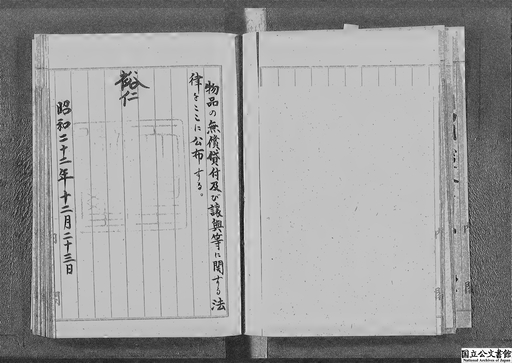 物品の無償貸付及び譲與等に関する法
律をここに公布する。
裕仁
昭和二十二年十二月二十三日
国立公文書館
National Archives of Japan